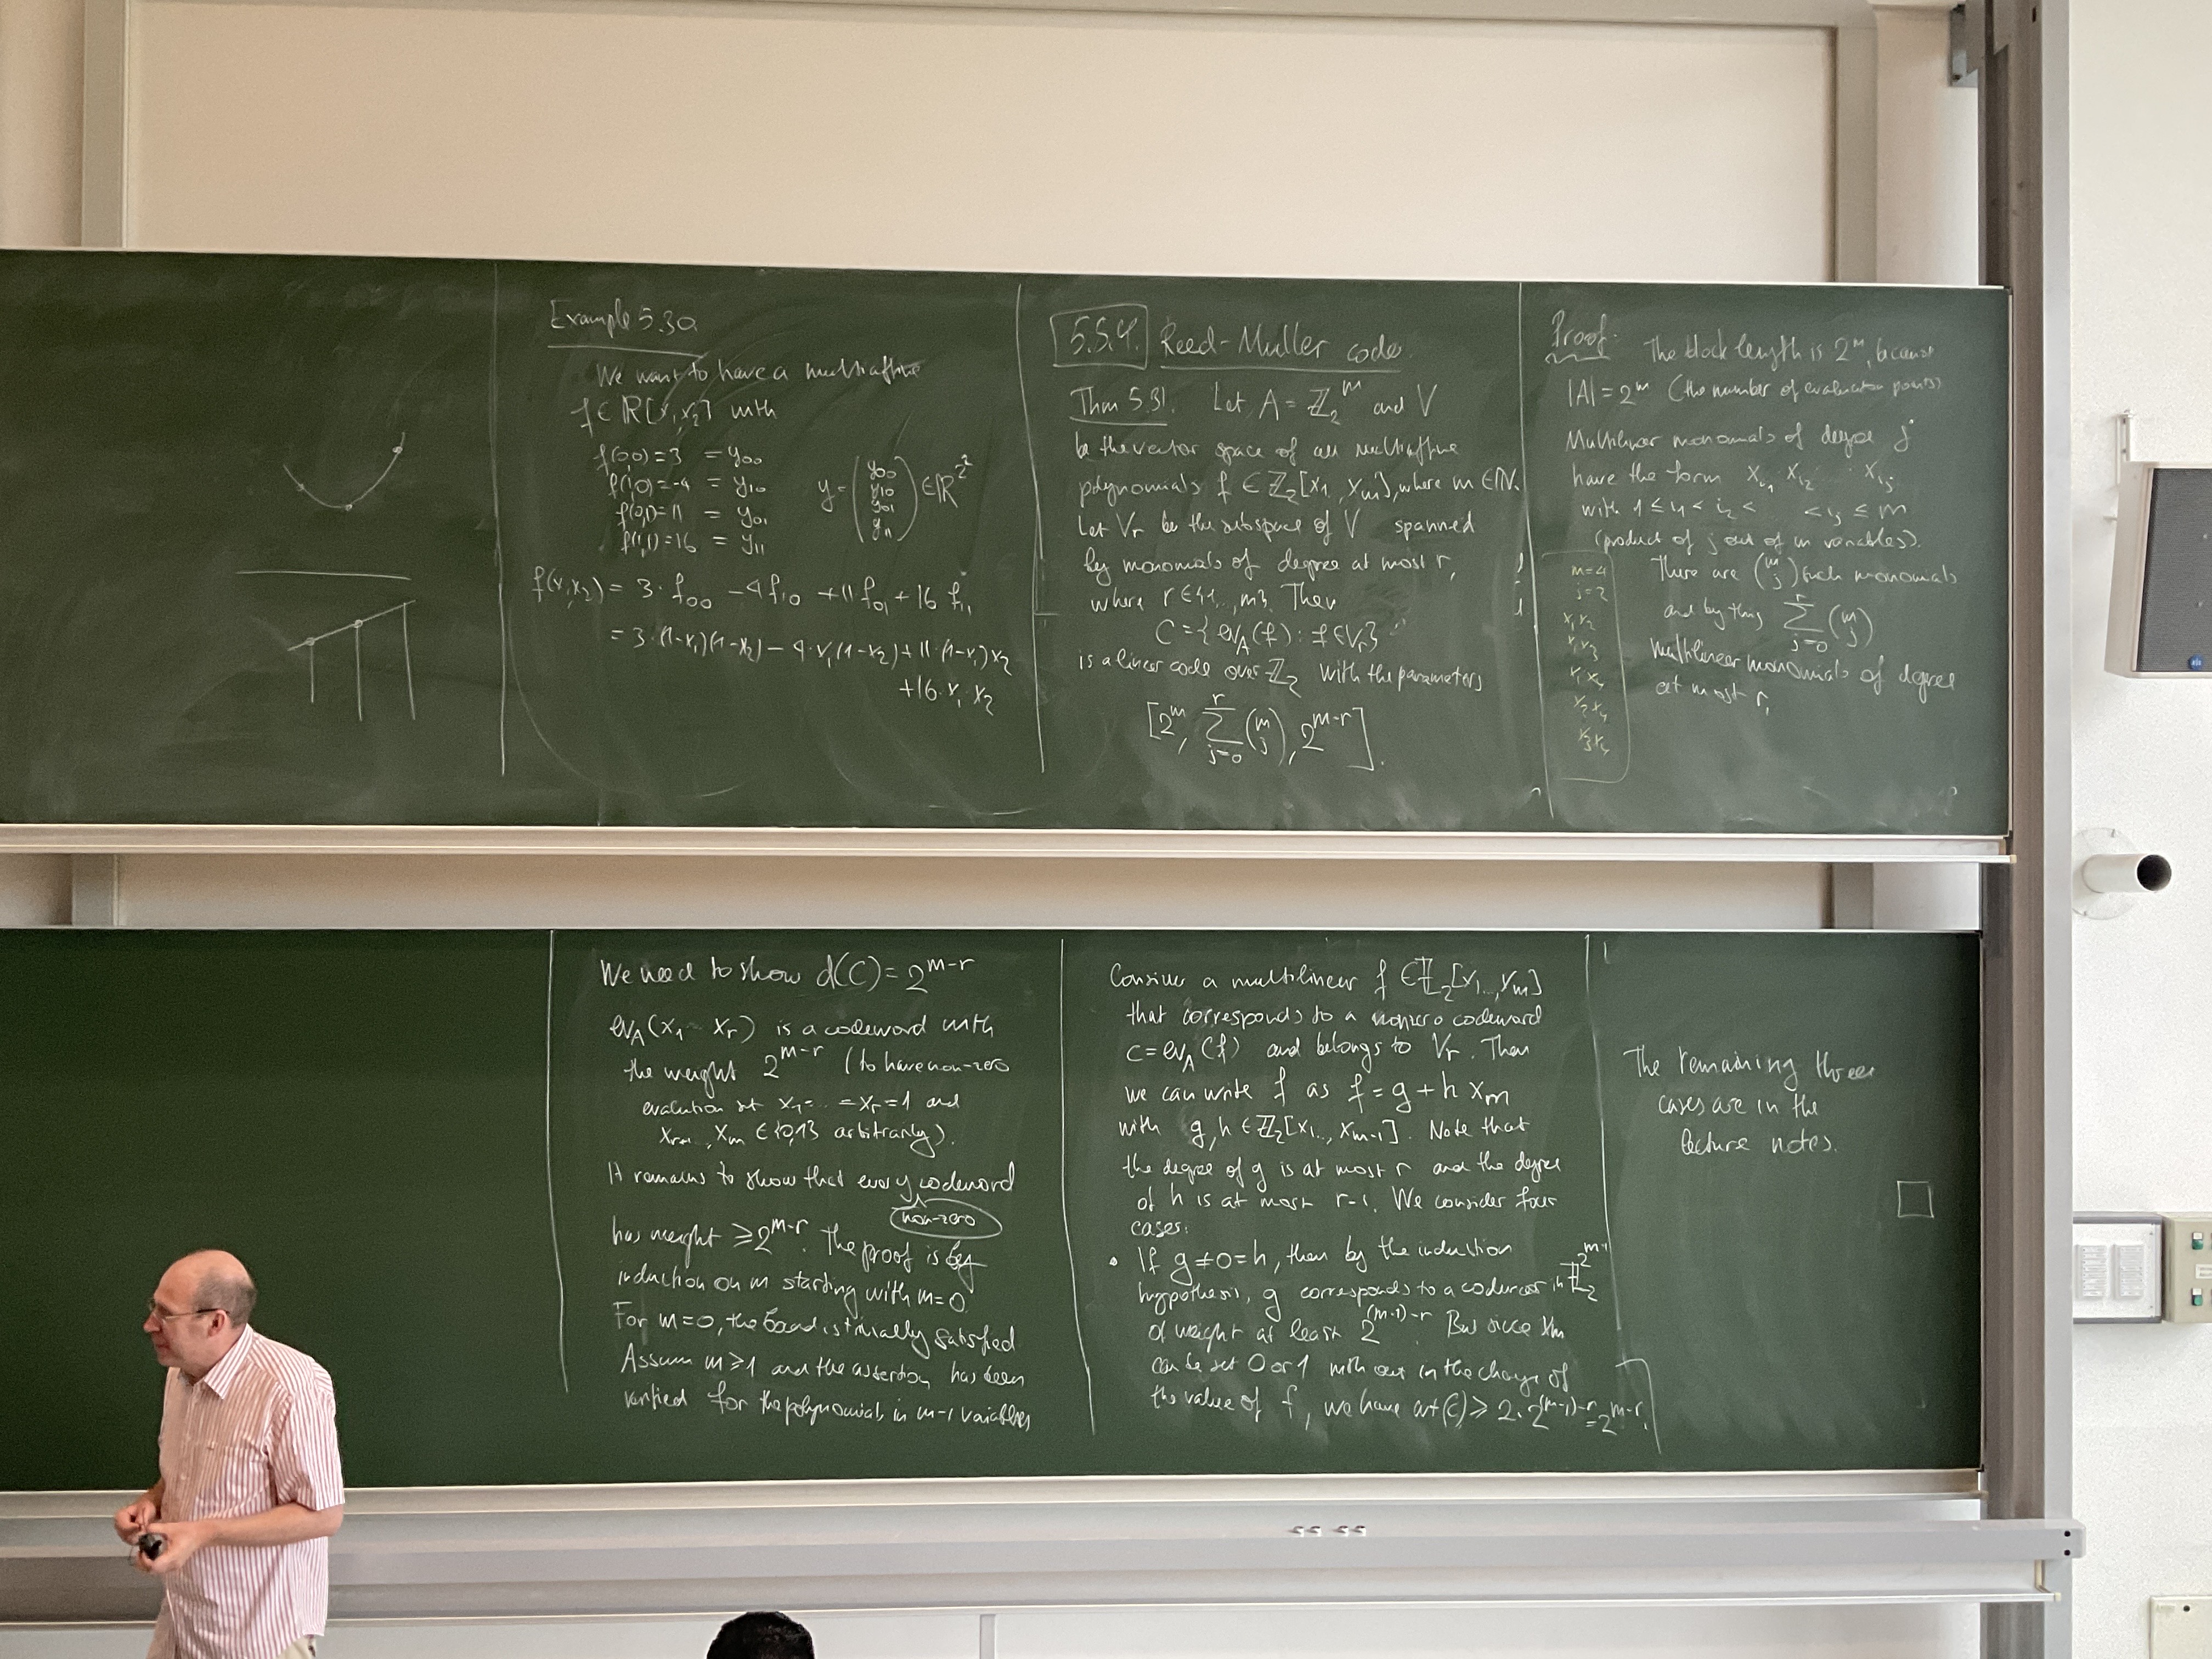 Example 5.30
We want to have a multiaffine
f ∈ ℝ[x₁,x₂] with
f(0,0)=3 = y₀₀
f(1,0)=-4 = y₁₀
f(0,1)=11 = y₀₁
f(1,1)=16 = y₁₁
y = (y₀₀ y₁₀ y₀₁ y₁₁) ∈ ℝ^{2²}
f(x₁,x₂) = 3·f₀₀ -4f₁₀ +11f₀₁ + 16 f₁₁
= 3·(1-x₁)(1-x₂) - 4·x₁(1-x₂) + 11·(1-x₁)x₂
+16·x₁x₂
5.5.4. Reed-Muller codes
Thm 5.31. Let A = ℤ₂^m and V
be the vector space of all multiaffine
polynomials f ∈ ℤ₂[x₁, x_m], where m ∈ ℕ.
Let V_r be the subspace of V spanned
by monomials of degree at most r,
where r ∈ {1,.., m}. Then
C = {ev_A(f) : f ∈ V_r}
is a linear code over ℤ₂ with the parameters
[2^m, ∑_{j=0}^{r} (m j), 2^{m-r}].
Proof: The block length is 2^m, because
|A| = 2^m (the number of evaluation points)
Multilinear monomials of degree j
have the form x_{i₁} x_{i₂} ... x_{i_j}
with 1 ≤ i₁ < i₂ < < i_j ≤ m
(product of j out of m variables).
There are (m j) such monomials
and by this ∑_{j=0}^{r} (m j)
multilinear monomials of degree
at most r,
m=4
j=2
x₁x₂
x₁x₃
x₁x₄
x₂x₄
x₃x₄
We need to show d(C) = 2^{m-r}
ev_A(x₁ ... x_r) is a codeword with
the weight 2^{m-r} (to have non-zero
evaluation set x₁=... =x_r=1 and
x_{r+1}.., x_m ∈ {0,1} arbitrarily).
It remains to show that every codeword
non-zero
has weight ≥ 2^{m-r}. The proof is by
induction on m starting with m=0.
For m=0, the bound is trivially satisfied
Assume m ≥ 1 and the assertion has been
verified for the polynomials in m-1 variables
Consider a multilinear f ∈ ℤ₂[x₁..., x_m]
that corresponds to a nonzero codeword
c = ev_A(f) and belongs to V_r. Then
we can write f as f = g + h x_m
with g, h ∈ ℤ₂[x₁.., x_{m-1}]. Note that
the degree of g is at most r and the degree
of h is at most r-1. We consider four
cases:
• If g ≠ 0 = h, then by the induction
hypothesis, g corresponds to a codeword in ℤ₂^{2^{m-1}}
of weight at least 2^{(m-1)-r}. But since x_m
can be set 0 or 1 with out in the change of
the value of f, we have wt(C) ≥ 2·2^{(m-1)-r} = 2^{m-r}.
The remaining three
cases are in the
lecture notes.